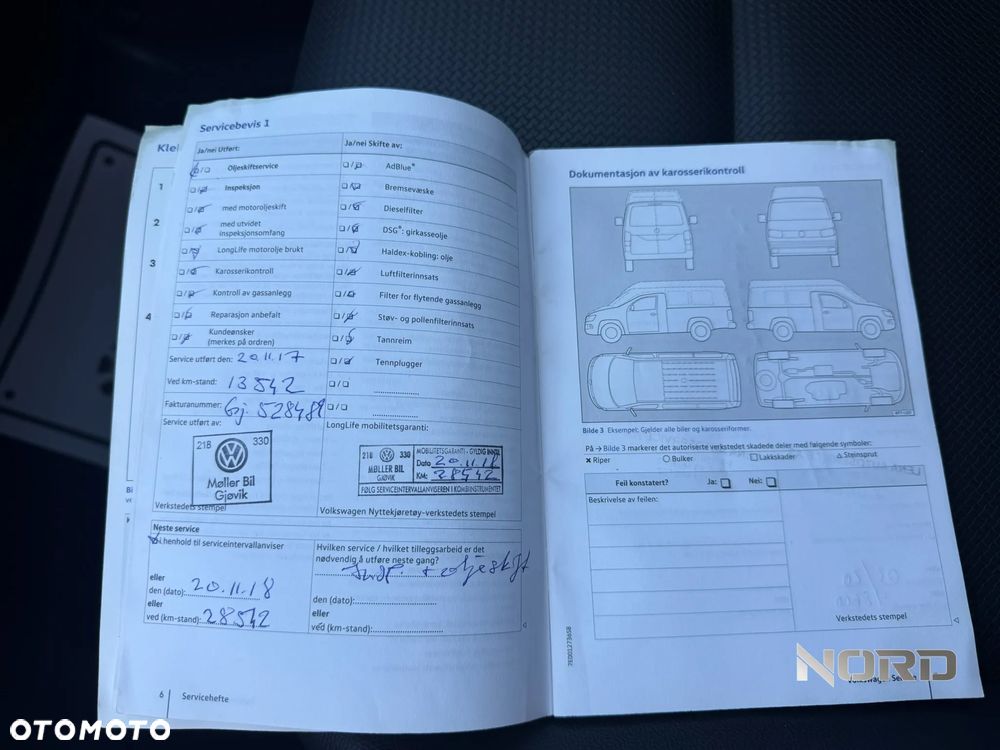 Servicebevis 1
Ja/nei Utført:
Ja/nei Skifte av:
Oljeskiftservice
Inspeksjon
med motoroljeskift
med utvidet
inspeksjonsomfang
LongLife motorolje brukt
Karosserikontroll
Kontroll av gassanlegg
Reparasjon anbefalt
Kundeønsker
(merkes på ordren)
AdBlue®
Bremsevæske
Dieselfilter
DSG®: girkasseolje
Haldex-kobling: olje
Luftfilterinnsats
Filter for flytende gassanlegg
Støv- og pollenfilterinnsats
Tannreim
Tennplugger
Service utført den: 20.11.17
Ved km-stand: 13542
Fakturanummer: Gj. 528489
Service utført av:
218 330
Møller Bil
Gjøvik
Verkstedets stempel
LongLife mobilitetsgaranti:
218 330
MØLLER BIL
GJØVIK
MOBILITETSGARANTI - GYLDIG INNTIL
Dato 20.11.18
KM: 28542
FØLG SERVICEINTERVALLANVISEREN I KOMBIINSTRUMENTET
Volkswagen Nyttekjøretøy-verkstedets stempel
Neste service
I henhold til serviceintervallanviser
eller
den (dato): 20.11.18
eller
ved (km-stand): 28542
Hvilken service / hvilket tilleggsarbeid er det
nødvendig å utføre neste gang?
+ oljeskift
den (dato):
eller
ved (km-stand):
6 Servicehefte
Kle
1
2
3
4
Dokumentasjon av karosserikontroll
Bilde 3 Eksempel: Gjelder alle biler og karosseriformer.
På → Bilde 3 markerer det autoriserte verkstedet skadede deler med følgende symboler:
× Riper ○ Bulker □ Lakkskader △ Steinsprut
Feil konstatert? Ja: □ Nei: □
Beskrivelse av feilen:
Verkstedets stempel
NORD
OTOMOTO